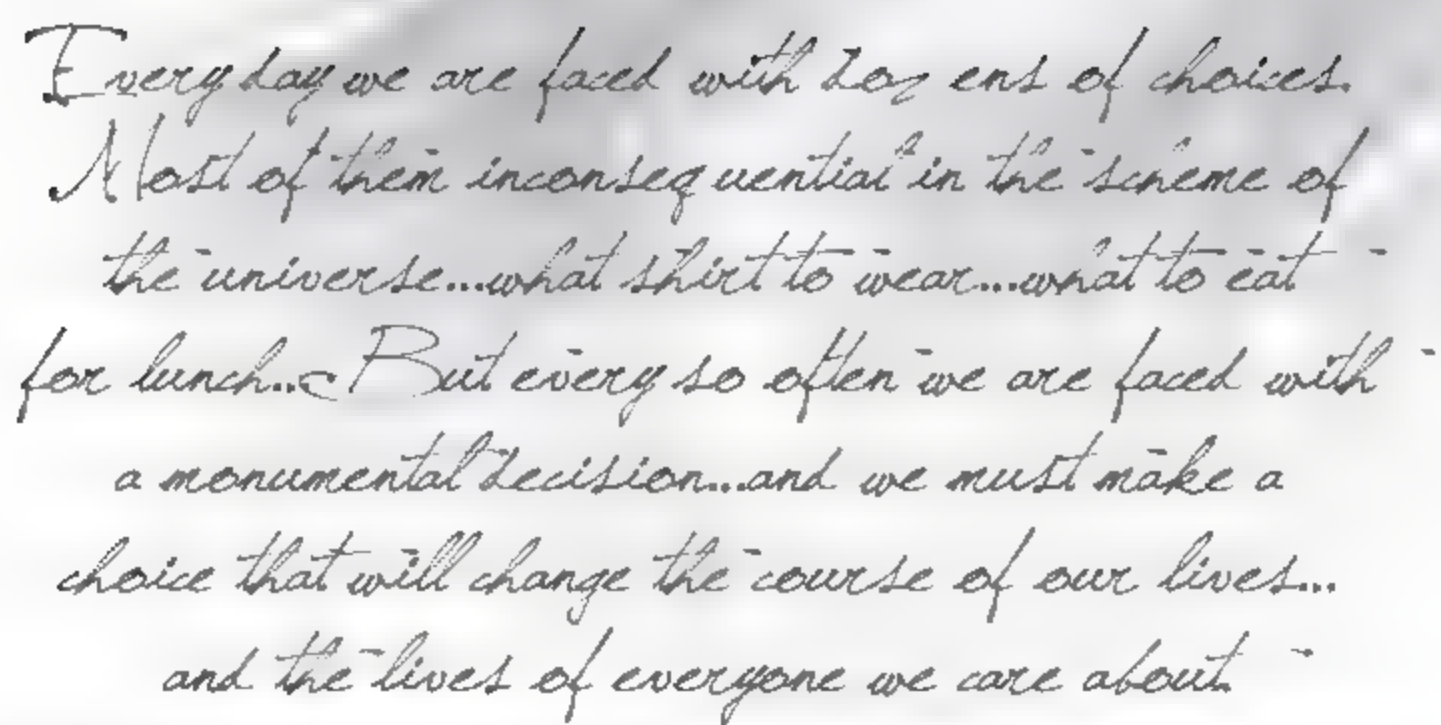 Every day we are faced with dozens of choices.
Most of them inconsequential in the scheme of
the universe...what shirt to wear...what to eat
for lunch... But every so often we are faced with
a monumental decision...and we must make a
choice that will change the course of our lives...
and the lives of everyone we care about.